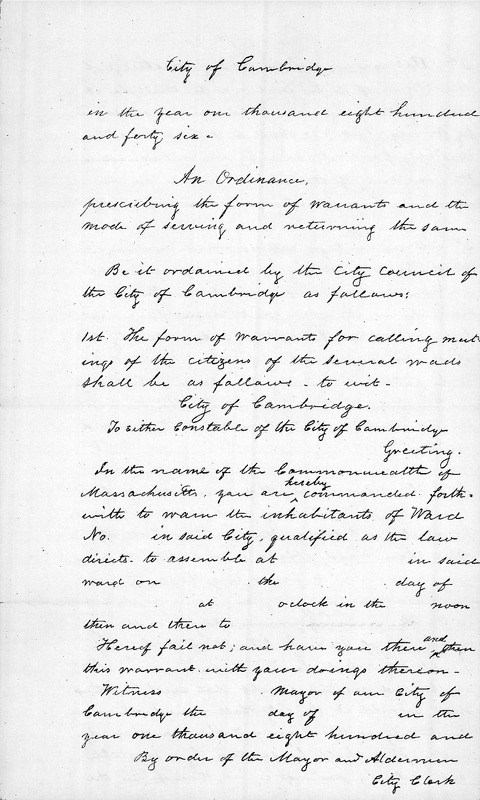 City of Cambridge
in the year one thousand eight hundred
and forty six -
An Ordinance,
prescribing the form of warrants and the
mode of serving and returning the same
Be it ordained by the City Council of
the City of Cambridge as follows:
1st. The form of warrants for calling meet-
ings of the citizens of the several wards
shall be as follows - to wit -
City of Cambridge.
To either Constable of the City of Cambridge
Greeting.
In the name of the Commonwealth of
Massachusetts, you are hereby commanded forth-
with to warn the inhabitants of Ward
No. in said City, qualified as the law
directs - to assemble at in said
ward on the day of
at oclock in the noon
then and there to
Hereof fail not; and have you there and then
this warrant with your doings thereon -
Witness Mayor of our City of
Cambridge the day of in the
year one thousand eight hundred and
By order of the Mayor and Aldermen
City Clerk